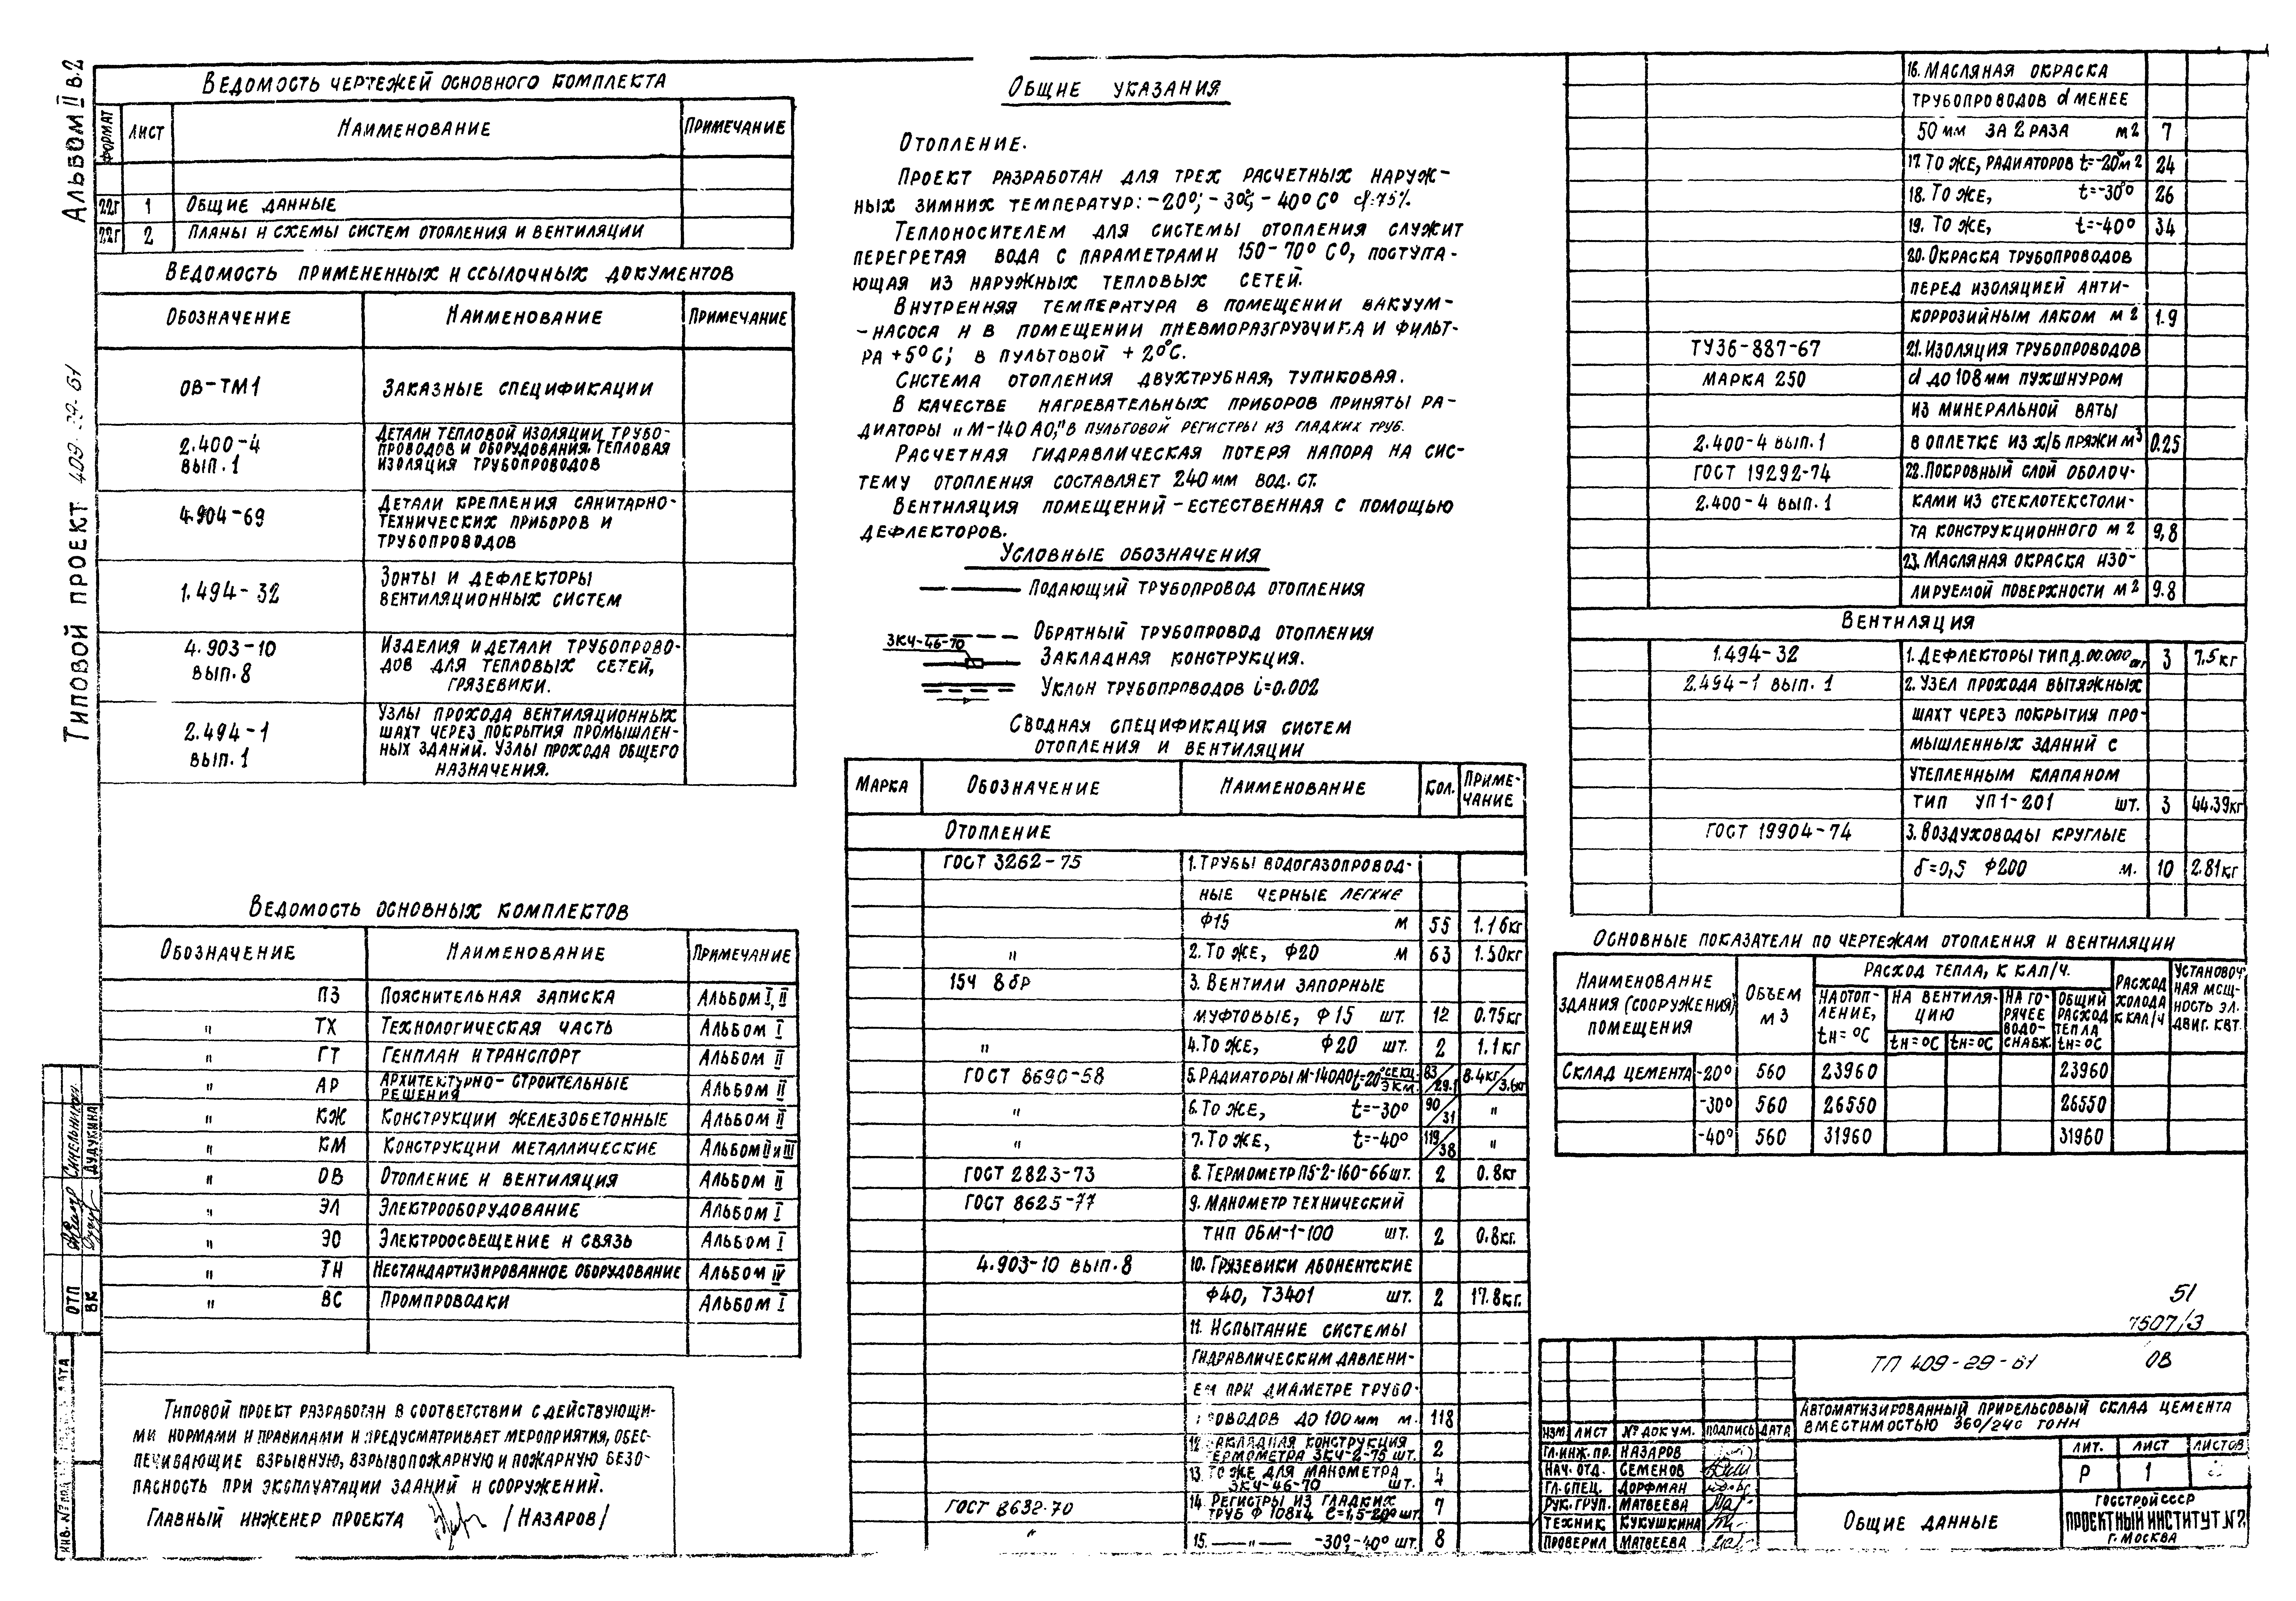 Альбом II в.2
Типовой проект 409-29-61
Ведомость чертежей основного комплекта
Формат Лист Наименование Примечание
22г 1 Общие данные
22г 2 Планы и схемы систем отопления и вентиляции
Ведомость примененных и ссылочных документов
Обозначение Наименование Примечание
ОВ-ТМ1 Заказные спецификации
2.400-4 вып.1
Детали тепловой изоляции трубо-
проводов и оборудования. Тепловая
изоляция трубопроводов
4.904-69
Детали крепления санитарно-
технических приборов и
трубопроводов
1.494-32
Зонты и дефлекторы
вентиляционных систем
4.903-10 вып.8
Изделия и детали трубопрово-
дов для тепловых сетей,
грязевики.
2.494-1 вып.1
Узлы прохода вентиляционных
шахт через покрытия промышлен-
ных зданий. Узлы прохода общего
назначения.
Ведомость основных комплектов
Обозначение Наименование Примечание
ПЗ Пояснительная записка Альбом I, II
" ТХ Технологическая часть Альбом I
" ГТ Генплан и транспорт Альбом II
" АР Архитектурно-строительные решения Альбом II
" КЖ Конструкции железобетонные Альбом II
" КМ Конструкции металлические Альбом II и III
" ОВ Отопление и вентиляция Альбом II
" ЭЛ Электрооборудование Альбом I
" ЭО Электроосвещение и связь Альбом I
" ТН Нестандартизированное оборудование Альбом IV
" ВС Промпроводки Альбом I
Типовой проект разработан в соответствии с действующи-
ми нормами и правилами и предусматривает мероприятия, обес-
печивающие взрывную, взрывопожарную и пожарную безо-
пасность при эксплуатации зданий и сооружений.
Главный инженер проекта /Назаров/
Синельников
Дудукина
ОТП
ВК
Инв. № под
Общие указания
Отопление.
Проект разработан для трех расчетных наруж-
ных зимних температур: -20°; -30°; -40° С° φ=75%.
Теплоносителем для системы отопления служит
перегретая вода с параметрами 150-70° С°, поступа-
ющая из наружных тепловых сетей.
Внутренняя температура в помещении вакуум-
-насоса и в помещении пневморазгрузчика и фильт-
ра +5°С; в пультовой +20°С.
Система отопления двухтрубная, тупиковая.
В качестве нагревательных приборов приняты ра-
диаторы „М-140 АО," в пультовой регистры из гладких труб.
Расчетная гидравлическая потеря напора на сис-
тему отопления составляет 240 мм вод. ст.
Вентиляция помещений - естественная с помощью
дефлекторов.
Условные обозначения
Подающий трубопровод отопления
Обратный трубопровод отопления
ЗКЧ-46-70 Закладная конструкция.
Уклон трубопроводов i=0.002
Сводная спецификация систем
отопления и вентиляции
Марка Обозначение Наименование Кол. Приме-чание
Отопление
ГОСТ 3262-75 1. Трубы водогазопровод-
ные черные легкие
Ф15 м 55 1.16кг
" 2. То же, Ф20 м 63 1.50кг
15ч 8бр 3. Вентили запорные
муфтовые, Ф15 шт. 12 0.75кг
" 4. То же, Ф20 шт. 2 1.1кг
ГОСТ 8690-58 5. Радиаторы М-140АО t=-20° секц./экм. 83/29.1 8.4кг/3.6кг
" 6. То же, t=-30° 90/31 "
" 7. То же, t=-40° 119/38 "
ГОСТ 2823-73 8. Термометр П5-2-160-66 шт. 2 0.8кг
ГОСТ 8625-77 9. Манометр технический
тип ОБМ-1-100 шт. 2 0.8кг.
4.903-10 вып.8 10. Грязевики абонентские
Ф40, Т3401 шт. 2 17.8кг.
11. Испытание системы
гидравлическим давлени-
ем при диаметре трубо-
проводов до 100мм м. 118
12. Закладная конструкция
термометра ЗКЧ-2-75 шт. 2
13. То же для манометра
ЗКЧ-46-70 шт. 4
ГОСТ 8632-70 14. Регистры из гладких
труб Ф 108х4 ℓ=1,5-20° шт. 7
" 15. —"— -30°,-40° шт. 8
16. Масляная окраска
трубопроводов d менее
50 мм за 2 раза м2 7
17. То же, радиаторов t=-20° м2 24
18. То же, t=-30° 26
19. То же, t=-40° 34
20. Окраска трубопроводов
перед изоляцией анти-
коррозийным лаком м2 1.9
ТУ36-887-67 21. Изоляция трубопроводов
марка 250 d до 108мм пухшнуром
из минеральной ваты
2.400-4 вып.1 в оплетке из х/б пряжи м3 0.25
ГОСТ 19292-74 22. Покровный слой оболоч-
2.400-4 вып.1 ками из стеклотекстоли-
та конструкционного м2 9,8
23. Масляная окраска изо-
лируемой поверхности м2 9.8
Вентиляция
1.494-32 1. Дефлекторы тип Д.00.000 шт 3 7,5кг
2.494-1 вып.1 2. Узел прохода вытяжных
шахт через покрытия про-
мышленных зданий с
утепленным клапаном
тип УП1-201 шт. 3 44.39кг
ГОСТ 19904-74 3. Воздуховоды круглые
δ=0,5 Ф200 м. 10 2.81кг
Основные показатели по чертежам отопления и вентиляции
Наименование здания (сооружения) помещения
Объем м3
Расход тепла, ккал/ч.
На отоп-ление, tн=°С
На вентиля-цию tн=°С tн=°С
На го-рячее водо-снабж.
Общий расход тепла tн=°С
Расход холода ккал/ч
Установоч-ная мощ-ность эл. двиг. квт.
Склад цемента -20° 560 23960 23960
-30° 560 26550 26550
-40° 560 31960 31960
51
7507/3
ТП 409-29-61 ОВ
Автоматизированный прирельсовый склад цемента
вместимостью 360/240 тонн
Изм Лист № докум. Подпись Дата
Гл.инж.пр. Назаров
Нач. отд. Семенов
Гл.спец. Дорфман
Рук.груп. Матвеева
Техник Кукушкина
Проверил Матвеева
Лит. Лист Листов
Р 1
Общие данные
Госстрой СССР
Проектный институт №2
г. Москва